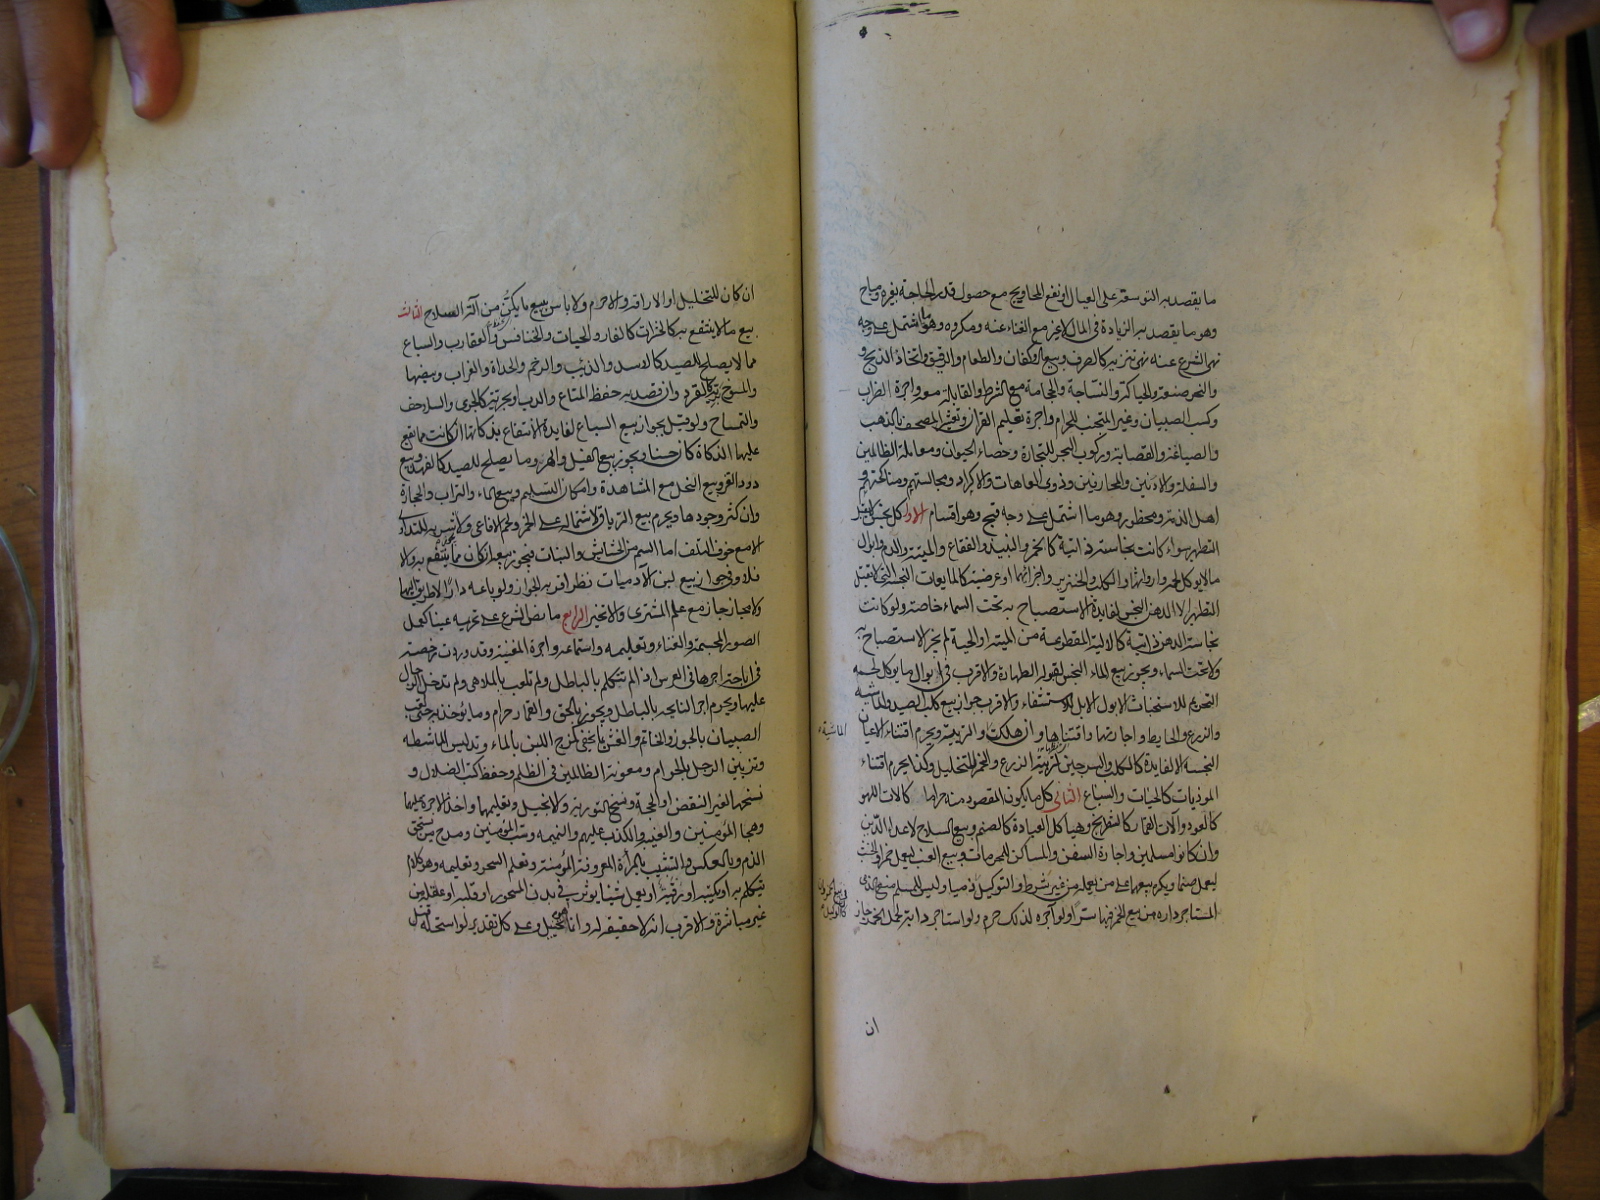 ما يقصد به التوسعة على العيال او نفع المحاويج مع حصول قدر الحاجة بغيره ومباح
وهو ما يقصد به الزيادة في المال لا غير مع الغناء عنه ومكروه وهو ما اشتمل على وجه
نهى الشرع عنه نهى تنزيه كالصرف وبيع الاكفان والطعام والرقيق واتخاذ الذبح و
والنحر صنعة والحياكة والنساجة والحجامة مع الشرط والقابلة معه واجرة الضراب
وكسب الصبيان وغير المتجنب للحرام واجرة تعليم القران وتعشير المصحف بالذهب
والصياغة والقصابة وركوب البحر للتجارة وخصاء الحيوان ومعاملة الظالمين
والسفلة والادنين والمحارفين وذوى العاهات والاكراد ومجالستهم ومناكحتهم
اهل الذمة ومحظور وهو ما اشتمل على وجه قبح وهو اقسام الاول كل نجس لا يقبل
التطهير سواء كانت نجاسته ذاتية كالخمر والنبيذ والفقاع والميتة والدم وابوال
مالا يوكل لحمه وارواثها والكلب والخنزير واجزائهما او عرضية كالمايعات النجسة التي لا تقبل
التطهير الا الدهن النجس لفايدة الاستصباح به تحت السماء خاصة ولو كانت
نجاسة الدهن ذاتية كالالية المقطوعة من الميتة او الحية لم يجز الاستصباح به
ولا تحت السماء ويجوز بيع الماء النجس لقبوله الطهارة والاقرب في ابوال ما يوكل لحمه
التحريم للاستخباث الا بول الابل للاستشفاء والاقرب جواز بيع كلب الصيد والماشية
والزرع والحايط واجارتها واقتنائها وان هلكت والتربية ويحرم اقتناء الاعيان
النجسة الا لفايدة كالكلب والسرجين لتربية الزرع والخمر للتخليل وكذا يحرم اقتناء
الموذيات كالحيات والسباع الثاني كل ما يكون المقصود منه حراما كالات اللهو
كالعود وآلات القمار كالشطرنج وهياكل العبادة كالصنم وبيع السلاح لاعداء الدين
وان كانوا مسلمين واجارة السفن والمساكن للمحرمات وبيع العنب ليعمل خمرا والخشب
ليعمل صنما ويكره بيعهما على من يعمله من غير شرط والتوكيل ذميا وليس للمسلم منع الذمي
المستاجر داره من بيع الخمر فيها سترا ولو آجره لذلك حرم ولو استاجر دابة لحمل الخمر جاز
الماشية
ان
ان كان للتخليل او الاراقة والا حرم ولا باس ببيع ما يكن من آلة السلاح الثالث
بيع مالا ينتفع به كالحشرات كالفار والحيات والخنافس والعقارب والسباع
مما لا يصلح للصيد كالاسد والذئب والرخم والحداة والغراب وبيضها
والمسوخ برية كالقرد وان قصد به حفظ المتاع والدب او بحرية كالجرى والسلاحف
والتمساح ولو قيل بجواز بيع السباع لفايدة الانتفاع بذكاتها ان كانت مما تقع
عليها الذكاة كان حسنا ويجوز بيع الفيل والهر وما يصلح للصيد كالفهد وبيع
دود القز وبيع النحل مع المشاهدة وامكان التسليم وبيع الماء والتراب والحجارة
وان كثر وجودها ويحرم بيع الترياق لاشتماله على الخمر ولحم الافاعى ولا نشربه للتداوى
الا مع خوف التلف اما السم من الحشايش والنبات فيجوز بيعه ان كان مما ينتفع به والا
فلا وفي جواز بيع لبن الآدميات نظر اقربه الجواز ولو باعه دارا لا طريق لها
ولا مجاز جاز مع علم المشترى والا تخير الرابع ما نص الشرع على تحريمه عينا كعمل
الصور المجسمة والغناء وتعليمه واستماعه واجرة المغنية وقد وردت رخصة
في اباحة اجرها في العرس اذا لم تتكلم بالباطل ولم تلعب بالملاهى ولم تدخل الرجال
عليها ويحرم اجر النايحة بالباطل ويجوز بالحق والقمار حرام وما يوخذ به حتى لعب
الصبيان بالجوز والخاتم والغش بما يخفى كمزج اللبن بالماء وتدليس الماشطة
وتزيين الرجل بالحرام ومعونة الظالمين في الظلم وحفظ كتب الضلال و
نسخها لغير النقض او الحجة ونسخ التورية والانجيل وتعليمها واخذ الاجرة عليها
وهجا المؤمنين والغيبة والكذب عليهم والنميمة وسب المؤمنين ومدح من يستحق
الذم وبالعكس والتشبيب بالمرأة المعروفة المؤمنة وتعلم السحر وتعليمه وهو كلام
يتكلم به او يكتبه او رقية او يعمل شيئا يوثر في بدن المسحور او قلبه او عقله من
غير مباشرة والاقرب انه لا حقيقة له وانما هو تخييل وعلى كل تقدير لو استحله قتل